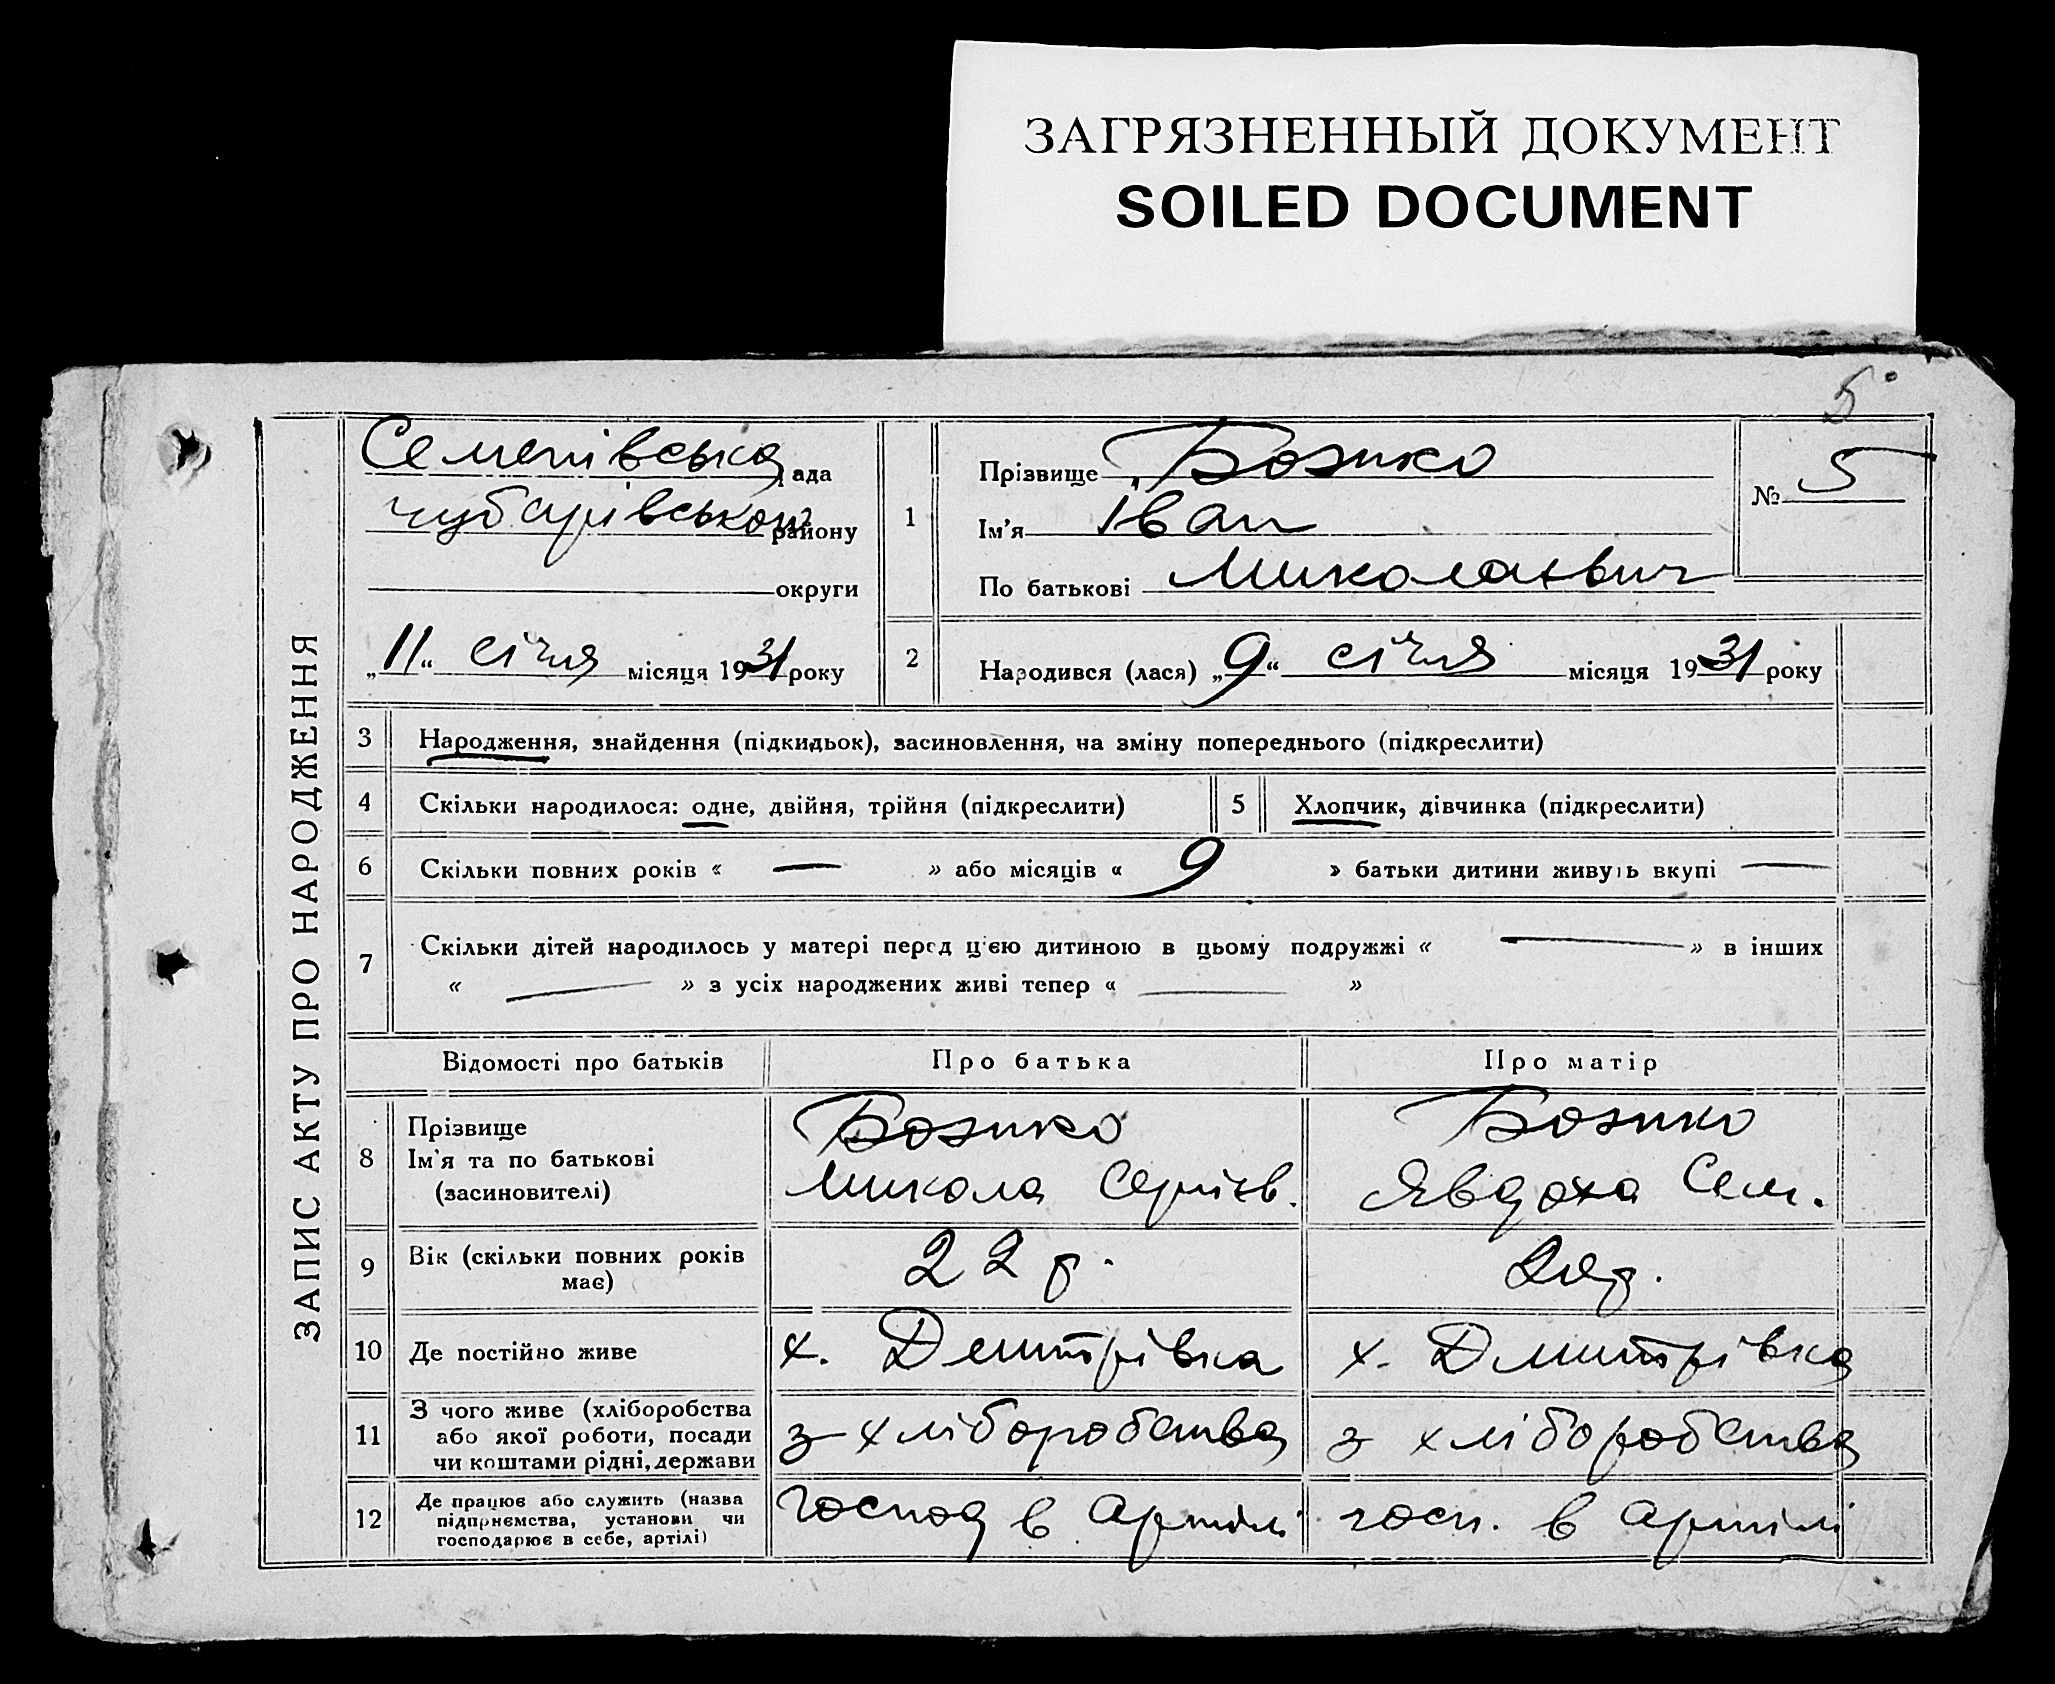 ЗАГРЯЗНЕННЫЙ ДОКУМЕНТ
SOILED DOCUMENT
5
ЗАПИС АКТУ ПРО НАРОДЖЕННЯ
Семенівська рада
Чубарівського району
округи
„11“ січня місяця 1931 року
1
Прізвище Божко
Ім'я Іван
По батькові Миколаєвич
№ 5
2
Народився (лася) „9“ січня місяця 1931 року
3 Народження, знайдення (підкидьок), засиновлення, на зміну попереднього (підкреслити)
4 Скільки народилося: одне, двійня, трійня (підкреслити)
5 Хлопчик, дівчинка (підкреслити)
6 Скільки повних років « — » або місяців « 9 » батьки дитини живуть вкупі —
7 Скільки дітей народилось у матері перед ц'єю дитиною в цьому подружжі « — » в інших
« — » з усіх народжених живі тепер « — »
Відомості про батьків Про батька Про матір
8 Прізвище
Ім'я та по батькові
(засиновителі)
Божко
Микола Сергієв.
Божко
Явдоха Сем.
9 Вік (скільки повних років
має)
22 р.
10 Де постійно живе
х. Дмитрівка
х. Дмитрівка
11 З чого живе (хліборобства
або якої роботи, посади
чи коштами рідні, держави
з хліборобства
з хліборобства
12 Де працює або служить (назва
підприємства, установи чи
господарює в себе, артілі)
господ в артілі
госп. в артілі